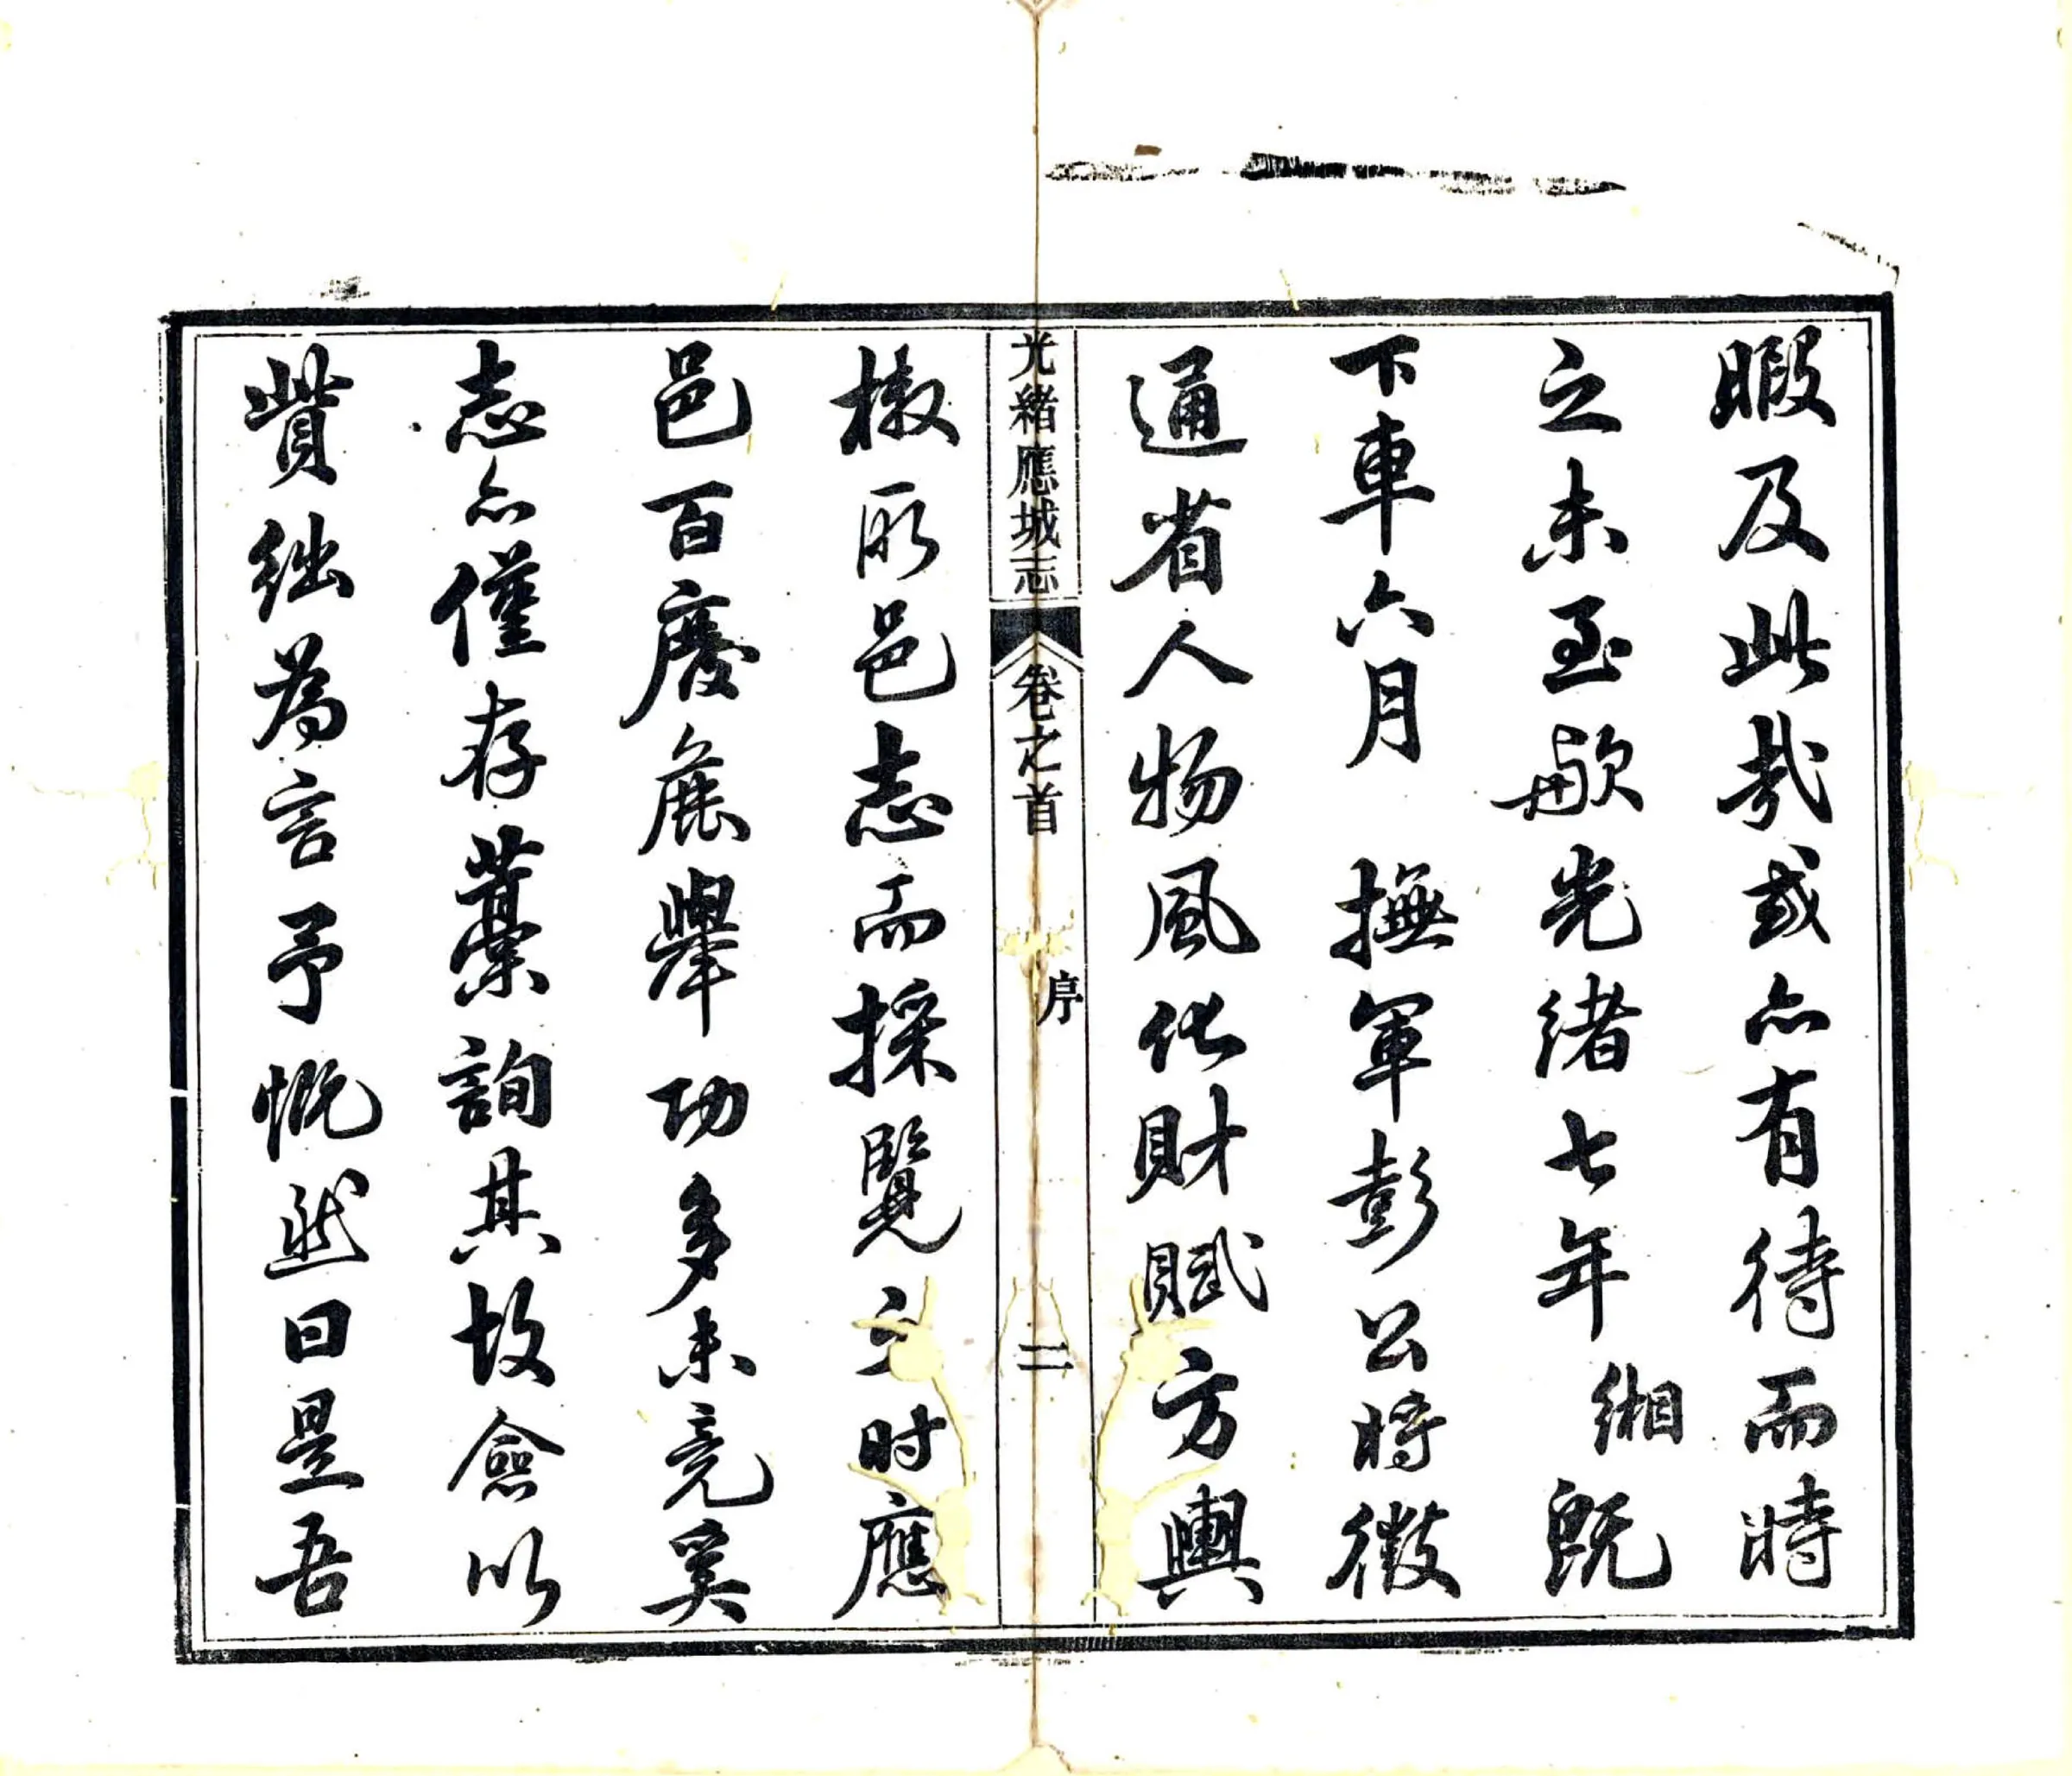 暇及此哉或亦有待而時
之未至歟光緒七年緗既
下車六月 撫軍彭公將徵
通省人物風化財賦方輿
光緒應城志 卷之首 序 二
檄取邑志而採覽之時應
邑百廢龐舉功多未竟奚
志亦僅存藁詢其故僉以
貲絀為言予慨然曰是吾